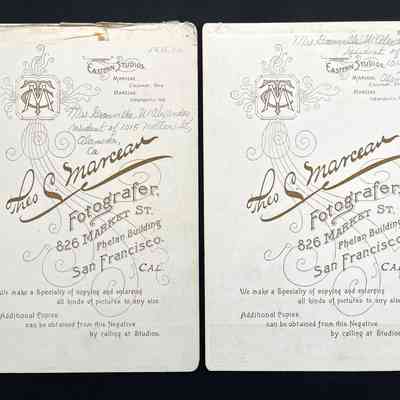 Eastern Studios.
Marceau,
Cincinnati, Ohio
Marceau,
Indianapolis, Ind.
Mrs Granville W Alexander
resident of 1015
Alameda,
Ca
Theo C Marceau
Fotografer.
826 Market St.
Phelan Building
San Francisco.
Cal.
We make a Specialty of copying and enlarging
all kinds of pictures to any size.
Additional Copies
can be obtained from this Negative
by calling at Studios.
Mrs Granville W Alexander
resident of
Eastern Studios.
Marceau,
Cincinnati, Ohio
Marceau,
Indianapolis, Ind.
Theo C Marceau
Fotografer.
826 Market St.
Phelan Building
San Francisco.
Cal.
We make a Specialty of copying and enlarging
all kinds of pictures to any size.
Additional Copies
can be obtained from this Negative
by calling at Studios.